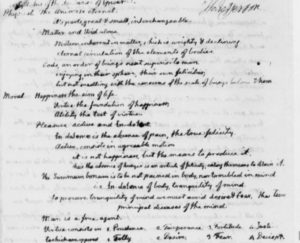 Physical. The Universe eternal.
it's parts, great & small, interchangeable.
Matter and Void alone
Motion inherent in matter, which is weighty & declining
eternal circulation of the elements of bodies.
Gods, an order of beings next superior to man.
enjoying in their sphere, their own felicities,
but not meddling with the concerns of the scale of beings below them
Moral. Happiness the aim of life.
Virtue the foundation of happiness,
Utility the test of virtue.
Pleasure active and Indolent
In dolence is the absence of pain, the true felicity.
Active, consists in agreable motion
it is not happiness, but the means to produce it.
The Summum bonum is to be not pained in body, nor troubled in mind
i.e. In dolence of body, tranquility of mind
to procure tranquility of mind we must avoid desire & fear, the two
principal diseases of the mind.
Man is a free agent.
Virtue consists in 1. Prudence 2. Temperance 3. Fortitude 4. Justice
to which are opposed 1. Folly 2. Desire 3. Fear 4. Deceipt